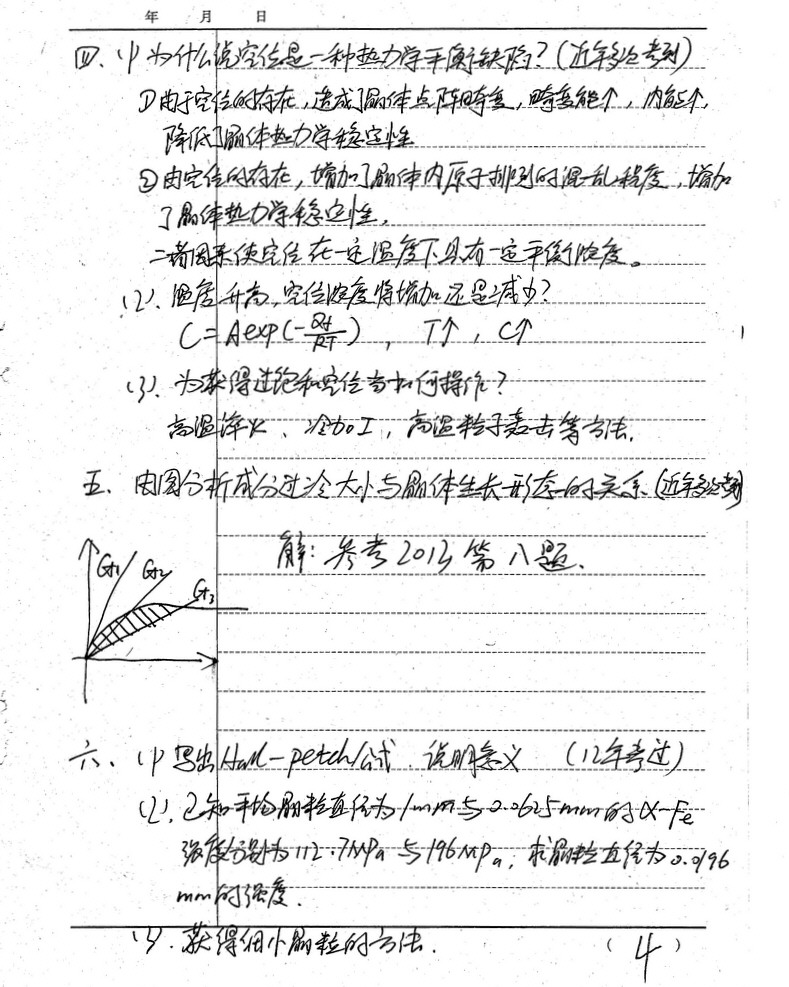 年 月 日
四、(1) 为什么说空位是一种热力学平衡缺陷?(近年多次考到)
①由于空位的存在,造成了晶体点阵畸变,畸变能↑,内能↑,
降低了晶体热力学稳定性
②由空位的存在,增加了晶体内原子排列的混乱程度,增加
了晶体热力学稳定性,
二者因素使空位在一定温度下具有一定平衡浓度。
(2). 温度升高,空位浓度将增加还是减少?
C=Aexp(-Qf/RT) , T↑ , C↑
(3). 为获得过饱和空位当如何操作?
高温淬火、冷加工,高温粒子轰击等方法.
五、由图分析成分过冷大小与晶体生长形态的关系.(近年多次考到)
解:参考2013第八题.
G1 G2 G3
六、(1) 写出Hall-petch公式.说明意义 (12年考过)
(2). 已知平均晶粒直径为1mm与0.0625mm的α-Fe
强度分别为112.7MPa与196MPa,求晶粒直径为0.0196
mm的强度.
(3). 获得细小晶粒的方法.
(4)